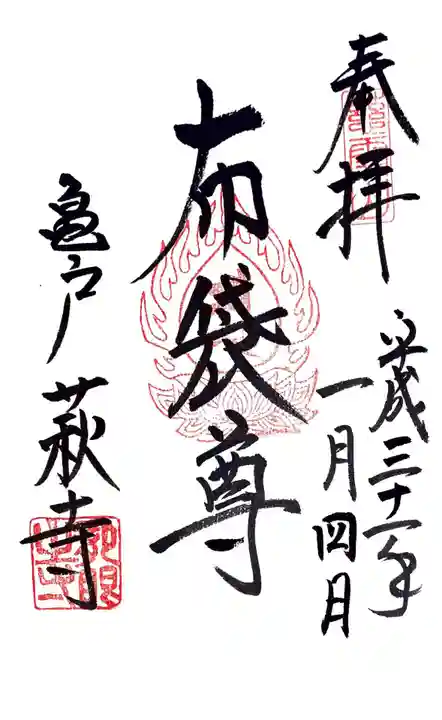 奉拝
平成三十一年
一月四日
布袋尊
亀戸 萩寺